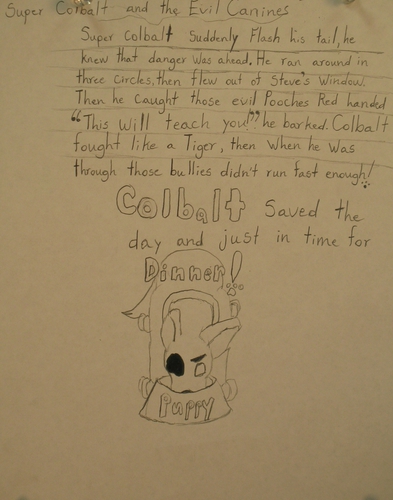 Super Colbalt and the Evil Canines
Super Colbalt Suddenly Flash his tail, he
knew that danger was ahead. He ran around in
three circles, then flew out of Steve's window.
Then he caught those evil Pooches Red handed
"This will teach you!" he barked. Colbalt
fought like a Tiger, then when he was
through those bullies didn't run fast enough!
Colbalt Saved the
day and just in time for
Dinner!
Puppy